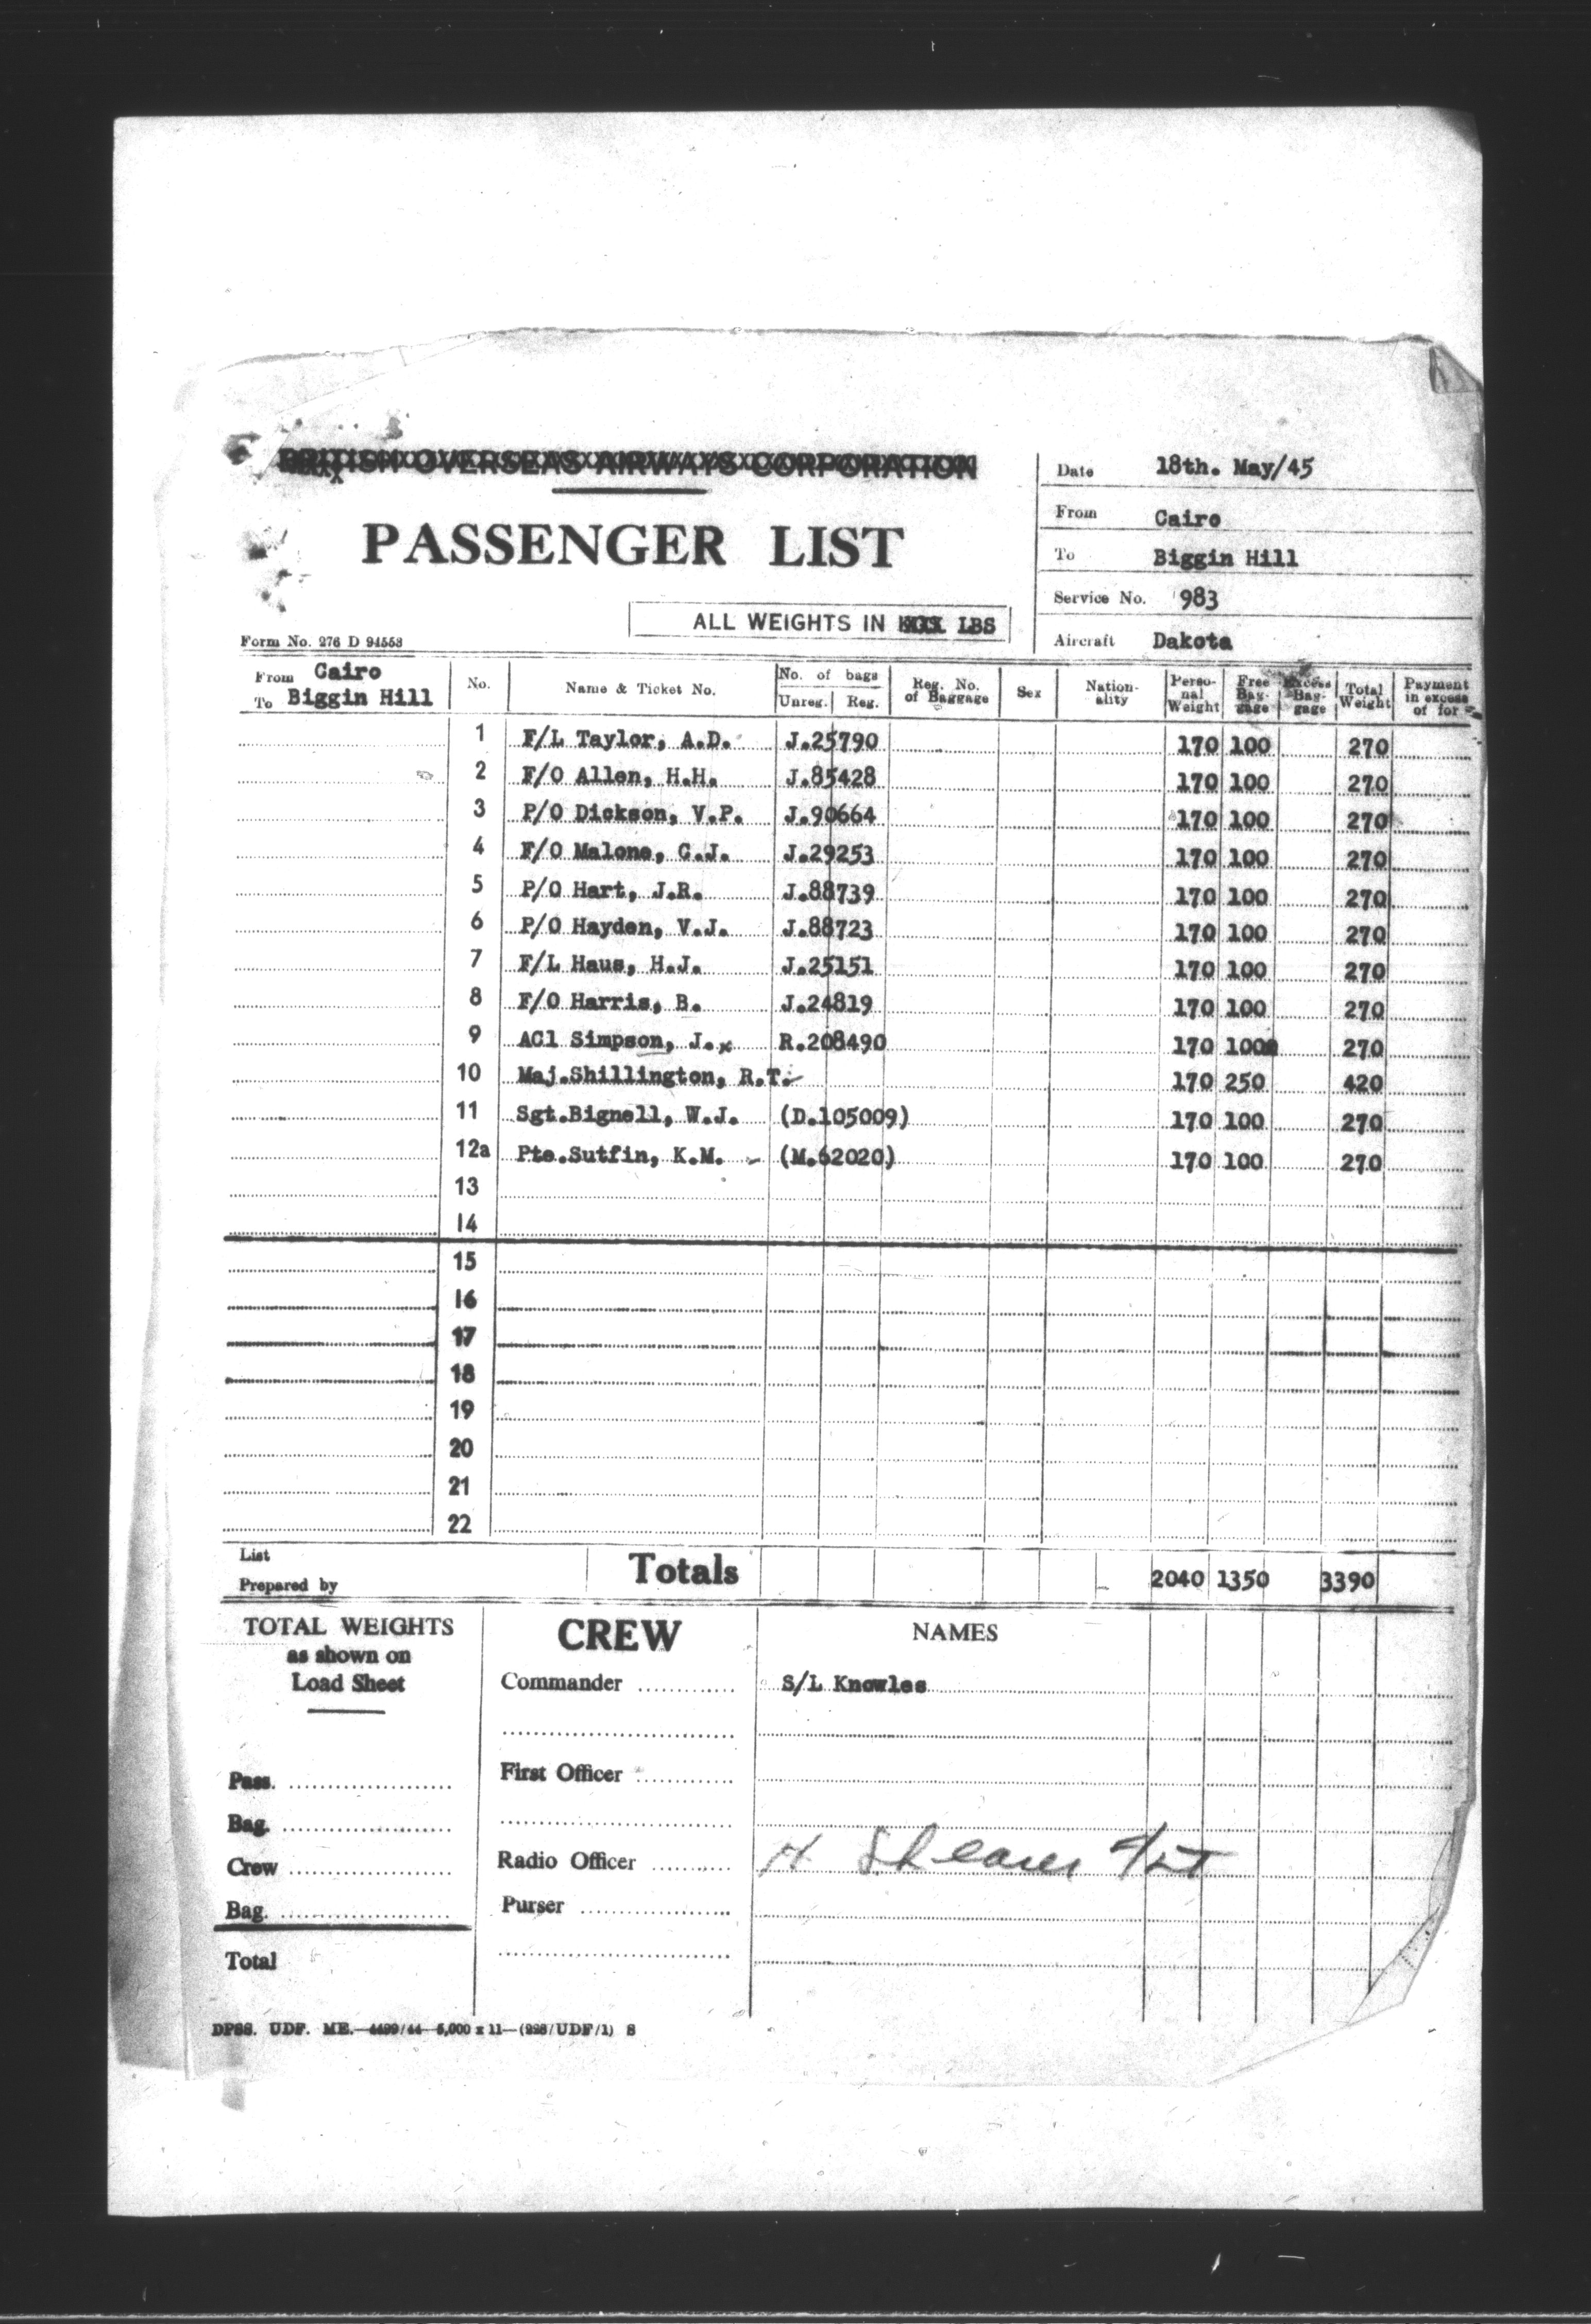 BRITISH OVERSEAS AIRWAYS CORPORATION
PASSENGER LIST
ALL WEIGHTS IN LBS
Form No. 276 D 94558
Date 18th. May/45
From Cairo
To Biggin Hill
Service No. 983
Aircraft Dakota
From Cairo
To Biggin Hill
No. Name & Ticket No. No. of bags Unreg. Reg. Reg. No. of Baggage Sex Nation-ality Perso-nal Weight Free Bag-gage Excess Bag-gage Total Weight Payment in excess of for
1 F/L Taylor, A.D. J.25790 170 100 270
2 F/O Allen, H.H. J.85428 170 100 270
3 P/O Dickson, V.P. J.90664 170 100 270
4 F/O Malone, C.J. J.29253 170 100 270
5 P/O Hart, J.R. J.88739 170 100 270
6 P/O Hayden, V.J. J.88723 170 100 270
7 F/L Haus, H.J. J.25151 170 100 270
8 F/O Harris, B. J.24819 170 100 270
9 AC1 Simpson, J. R.208490 170 100 270
10 Maj.Shillington, R.T. 170 250 420
11 Sgt.Bignell, W.J. (D.105009) 170 100 270
12a Pte.Sutfin, K.M. - (M.62020) 170 100 270
13
14
15
16
17
18
19
20
21
22
List
Prepared by
Totals 2040 1350 3390
TOTAL WEIGHTS
as shown on
Load Sheet
Pass.
Bag.
Crew
Bag.
Total
CREW NAMES
Commander S/L Knowles
First Officer
Radio Officer H Shearer
Purser
DPSS. UDF. ME.—4499/44—5,000 x 11—(228/UDF/1) S